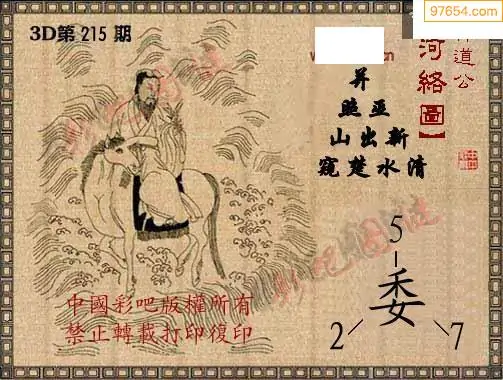 97654.com
3D第 215 期
道公
河絡圖】
并
亚
山出新
楚水清
5
委
2 7
中國彩吧版權所有
禁止轉載打印復印